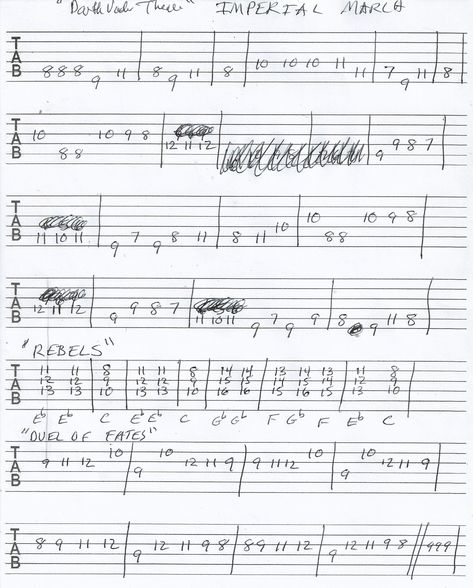 "Darth Vader Theme" IMPERIAL MARCH
TAB 8 8 8 9 11 8 9 11 8 10 10 10 11 11 7 9 11 8
TAB 10 8 8 10 9 8 12 11 12 9 9 8 7
TAB 11 10 11 9 7 9 8 11 8 11 10 10 8 8 10 9 8
TAB 12 11 12 9 9 8 7 11 10 11 9 7 9 9 8 9 11 8
"REBELS"
TAB
11 11 8 11 11 8 14 14 13 14 13 11 8
12 12 9 12 12 9 15 15 14 15 14 12 9
13 13 10 13 13 10 16 16 15 16 15 13 10
Eb Eb C Eb Eb C Gb Gb F Gb F Eb C
"DUEL OF FATES"
TAB 9 11 12 10 9 10 12 11 9 9 11 12 10 9 10 12 11 9
TAB 8 9 11 12 9 12 11 9 8 8 9 11 12 9 12 11 9 8 999